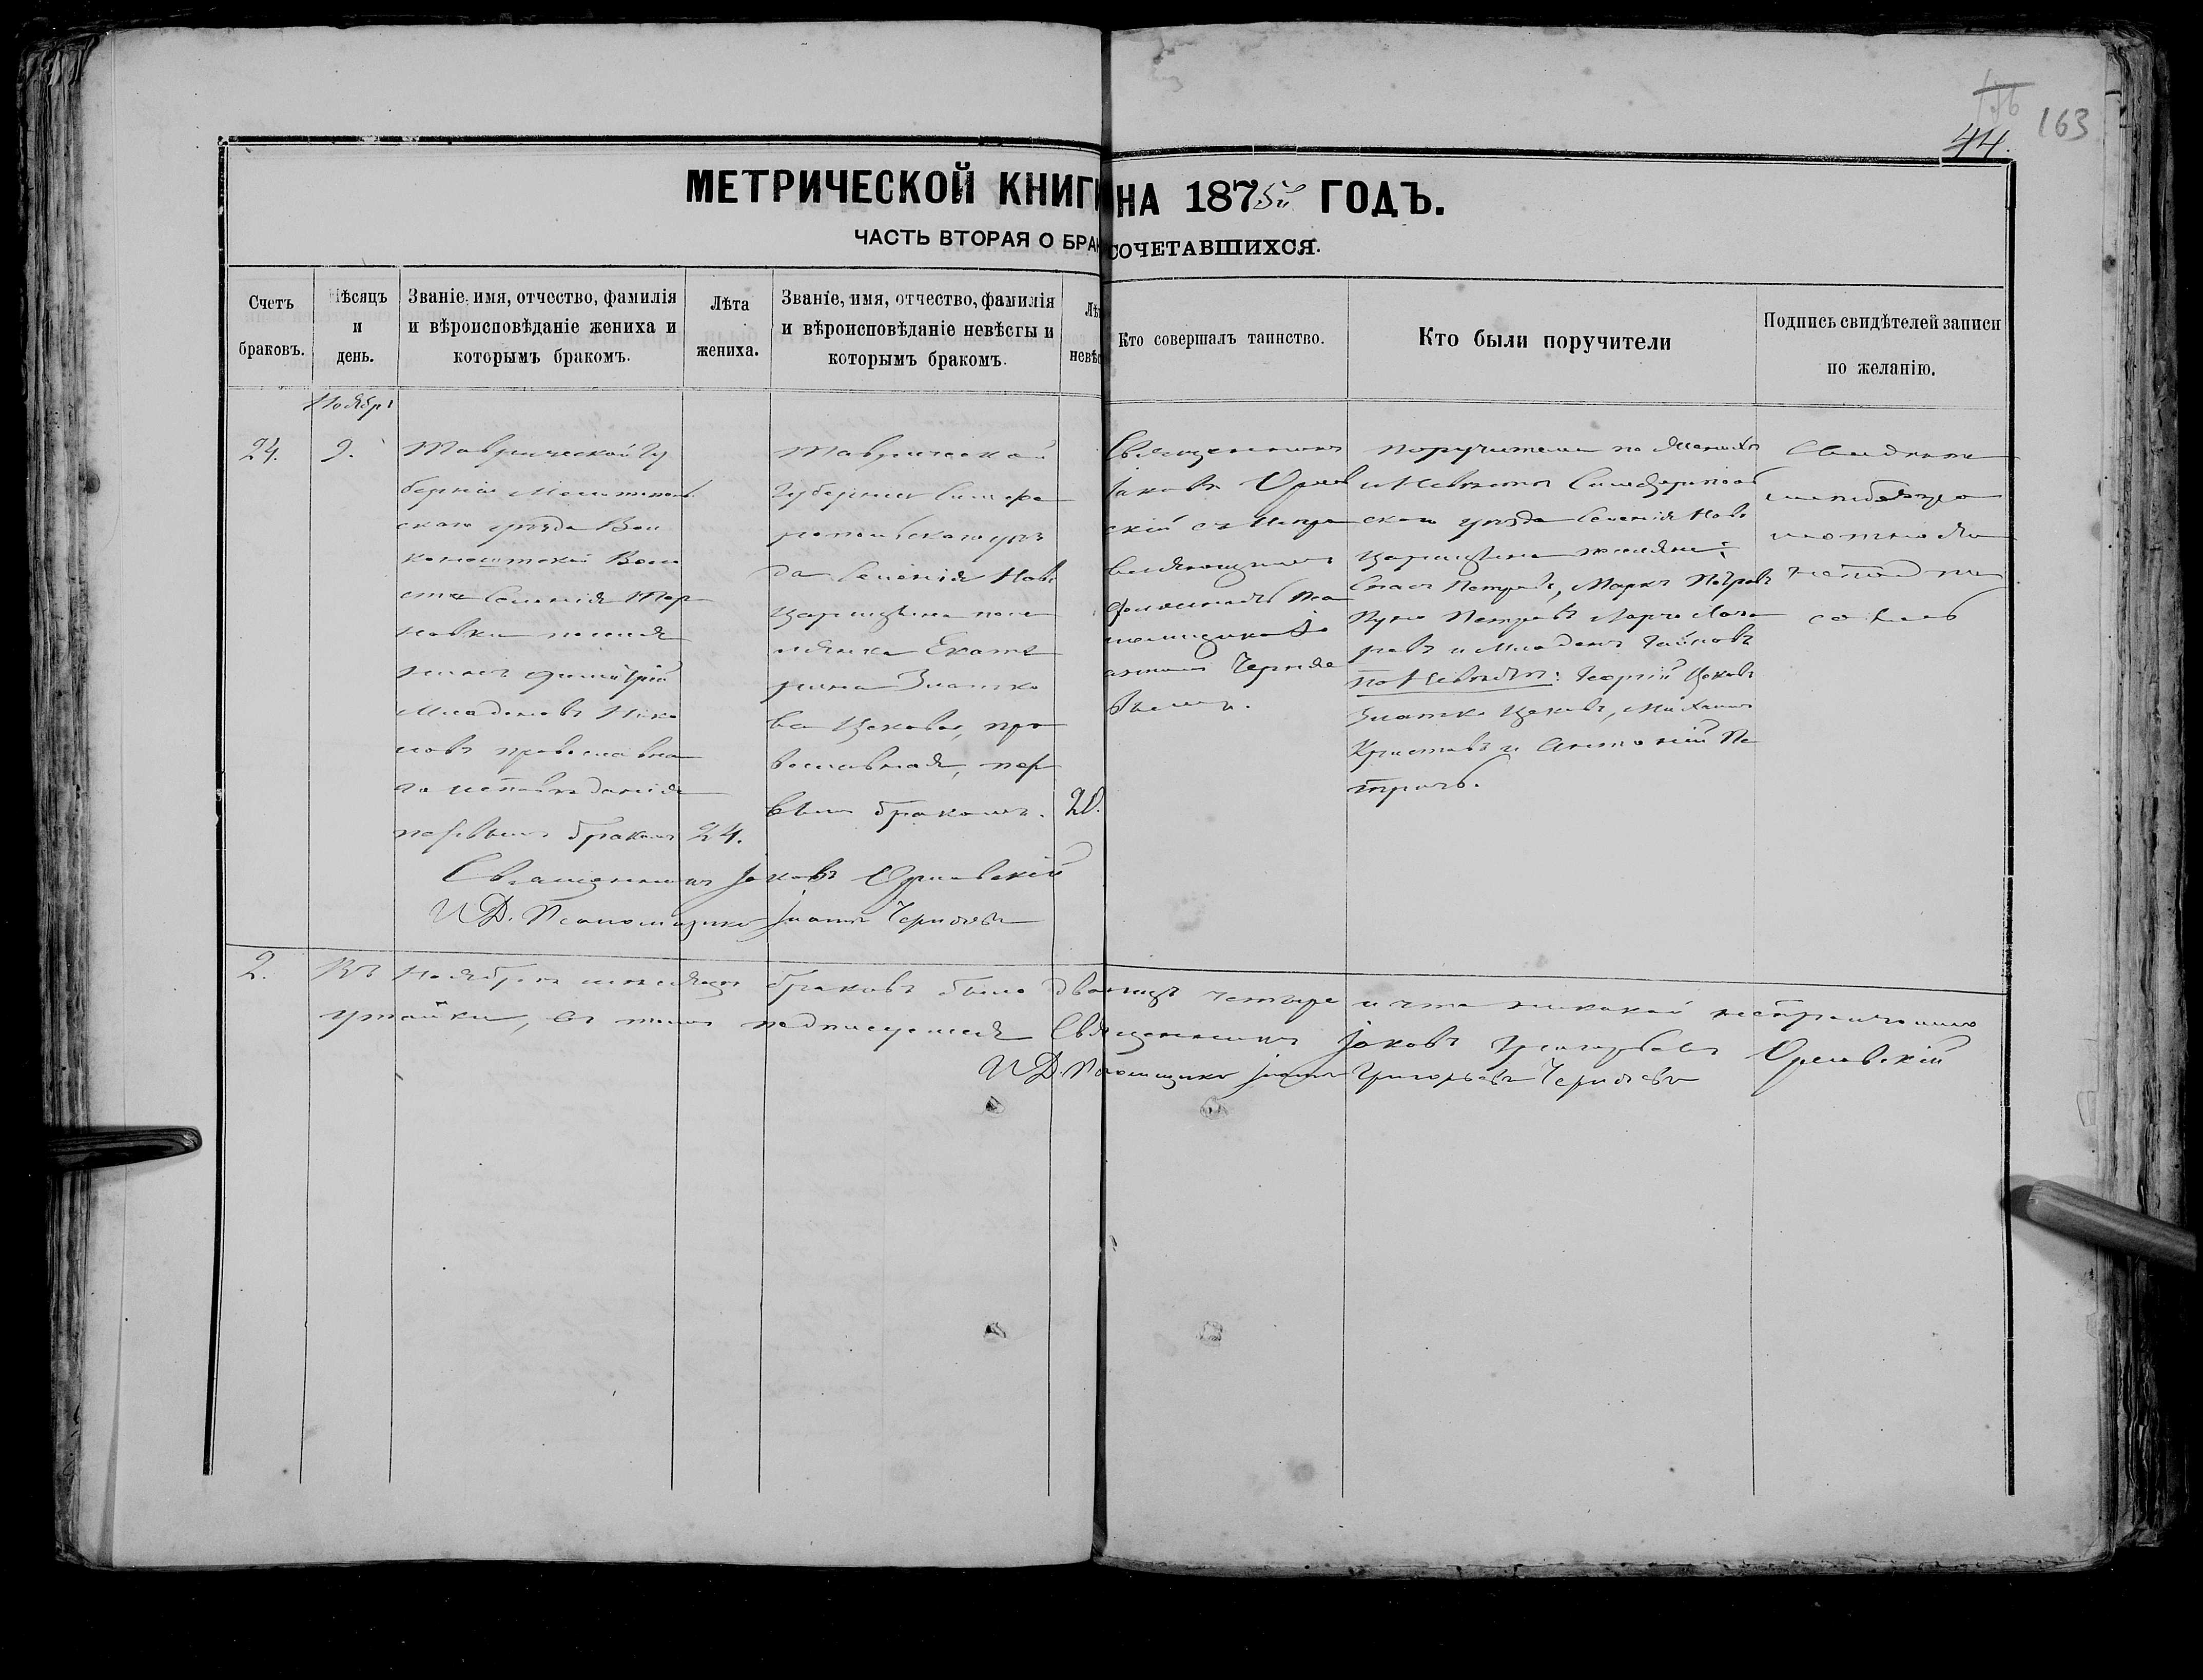 163
44.
МЕТРИЧЕСКОЙ КНИГИ НА 1875й ГОДЪ.
ЧАСТЬ ВТОРАЯ О БРАКОСОЧЕТАВШИХСЯ.
Счетъ
браковъ.
Мѣсяцъ
и
день.
Званіе, имя, отчество, фамилія
и вѣроисповѣданіе жениха и
которымъ бракомъ.
Лѣта
жениха.
Званіе, имя, отчество, фамилія
и вѣроисповѣданіе невѣсты и
которымъ бракомъ.
Кто совершалъ таинство.
Кто были поручители
Подпись свидѣтелей записи
по желанію.
Ноябрь
24.
9.
Таврической Гу
берніи Мелитополь
скаго уѣзда
Волo
сти Селенія Тер
новки поселя
нинъ Димитрій
Младеновъ Нико
ловъ православна
го исповѣданія
первымъ бракомъ
24.
Таврической
Губерніи Симфе
ропольскаго уѣз
да Селенія Ново
Царицына посе
лянка Екате
рина Златко
ва Цекова, пра
вославная, пер
вымъ бракомъ.
20.
Священникъ
Іаковъ Орлов
скій съ Испра
вляющимъ
должность Пса
ломщика Іо
анномъ Черняе
вымъ.
Поручители по женихѣ
и невѣстѣ Симферополь
скаго уѣзда Селенія Ново
Царицына поселяне:
Спасъ Петровъ, Марко Петровъ
Петровъ
ровъ и Младенъ
по невѣстѣ: Георгій Цековъ
Златко Цековъ, Михаилъ
Христовъ и Антоній Пе
тровъ.
Священникъ Іаковъ Орловскій
И.Д. Псаломщика Іоаннъ Черняевъ
2.
Въ Ноябрѣ мѣсяцѣ браковъ было двадцать четыре и что никакой не
утайки, въ томъ подписуемся Священникъ Іаковъ Григорьевъ Орловскій
И.Д. Псаломщика Іоаннъ Григорьевъ Черняевъ